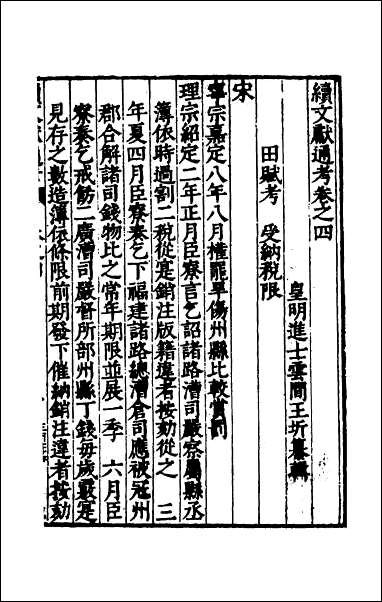 續文獻通考卷之四
皇明進士雲間王圻纂輯
田賦考　受納稅限
宋
寧宗嘉定八年八月權罷旱傷州縣比較賞罰
理宗紹定二年正月臣寮言乞詔諸路漕司嚴察屬縣丞
簿依時過割二稅從寔銷注版籍違者按劾從之　三
年夏四月臣寮奏乞下福建諸路總漕倉司應被冠州
郡合解諸司錢物比之常年期限並展一季　六月臣
寮奏乞戒飭二廣漕司嚴督所部州縣丁錢每歲覈寔
見存之數造簿依條限前期發下催納銷注違者按劾